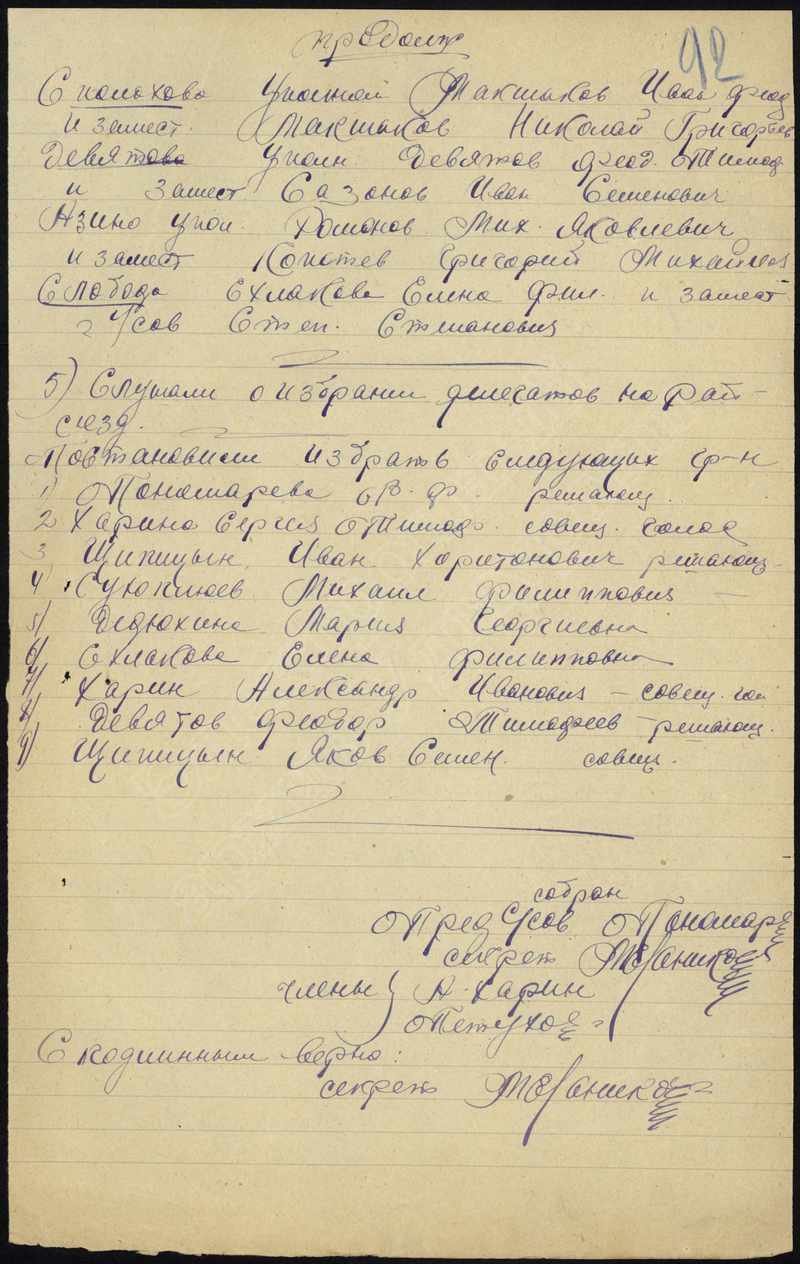 продолж
92
Сполохово Уполном Макшаков Иван Феод
и замест. Макшаков Николай Григорьев
Девятово Уполн. Девятов Феод. Тимоф
и замест Сазонов Иван Семенович
Азино упол. Хомонов Мих. Яковлевич
и замест Копотев Григорий Михайлов
Слобода Ехлакова Елена Фил. и замест
Усов Степ. Степанович
5) Слушали о избрании делегатов на Рай-
съезд.
Постановили избрать следующих гр-н
1) Пономарева решающ.
2 Харина Сергея Тимоф. совещ. голос
3 Щипицын Иван Харитонович решающ-
4/ Суюклюев Михаил Филиппович —
5/ Дедюхина Мария Георгиевна
6/ Ехлакова Елена Филипповна
7/ Харин Александр Иванович – совещ. гол
8/ Девятов Феодор Тимофеев – решающ.
9/ Щипицын Яков Семен. совещ.
собран
Пред Усов Пономар
секрет
члены А. Харин
Петухов
С подлинным верно:
секрет